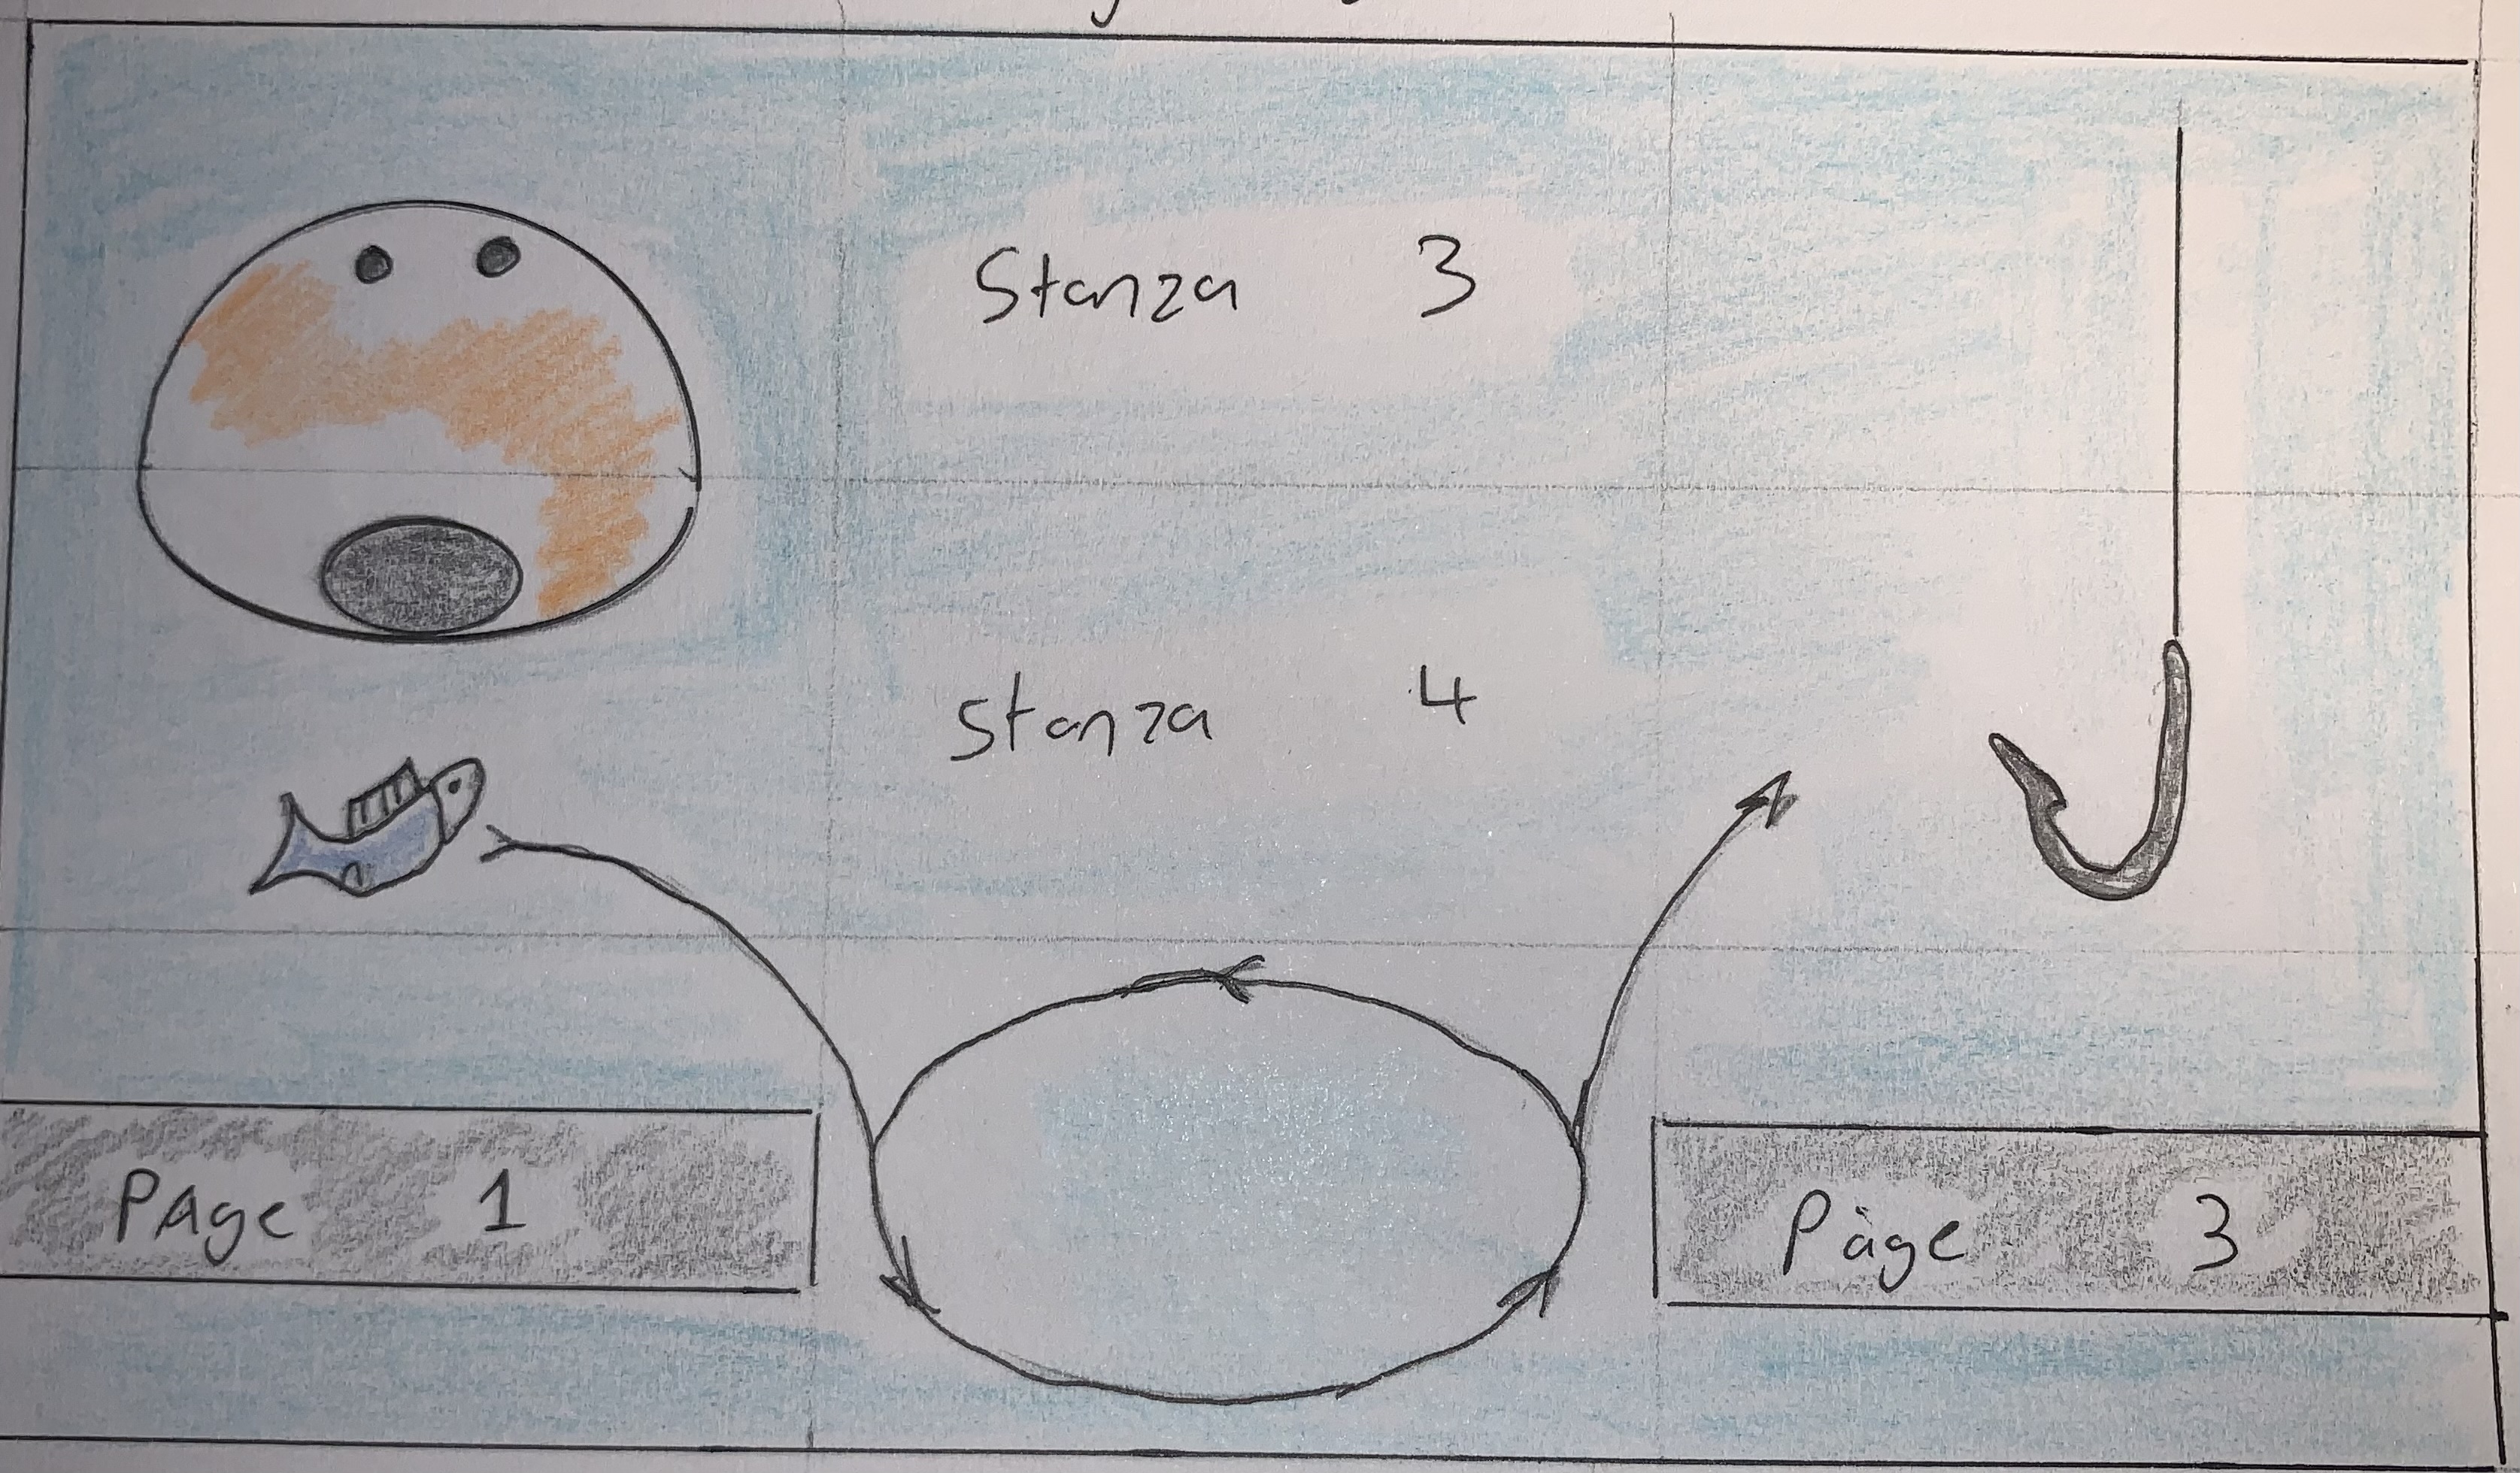 Stanza 3
Stanza 4
PAge 1
Page 3